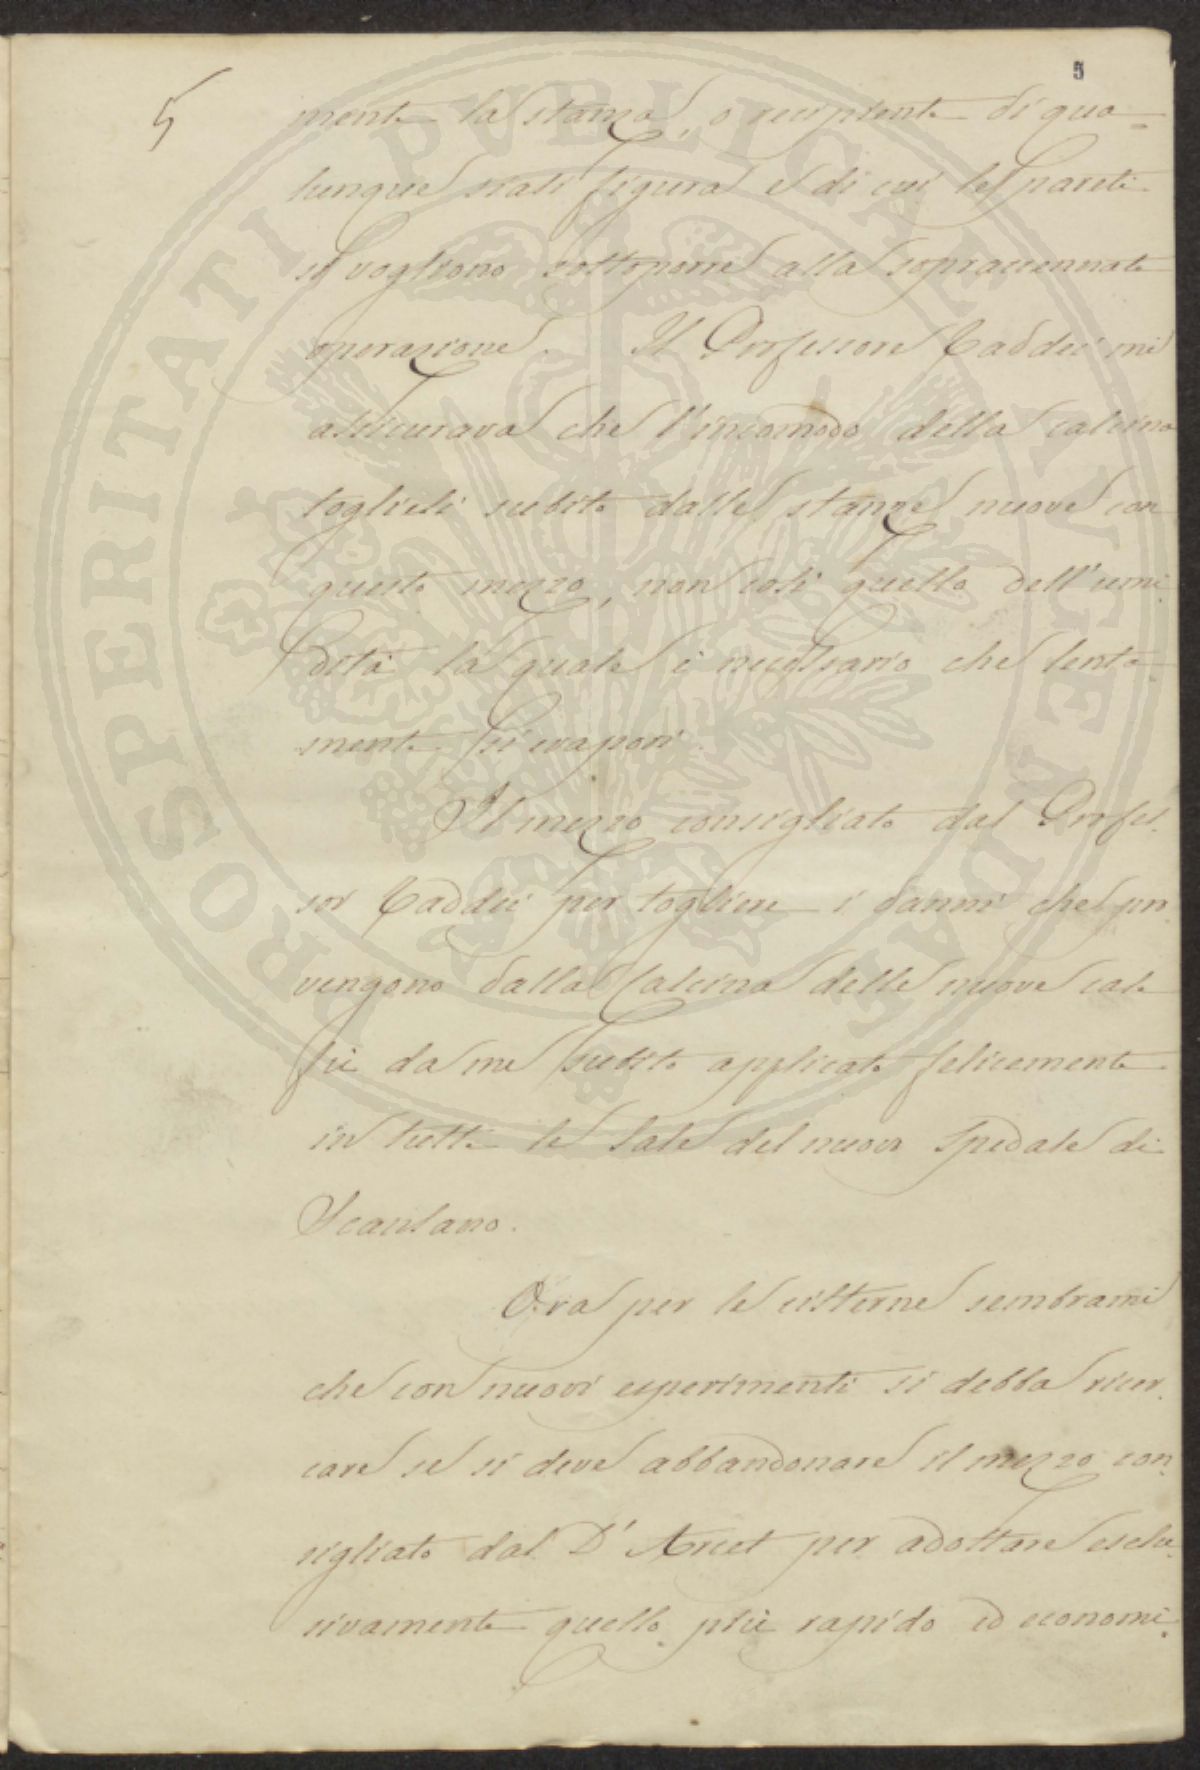 5
5
mente la stanza, o recipiente di qua=
lunque siasi figura e di cui le pareti
si vogliono sottoporre alla sopraccennata
operazione. Il Professore Taddei mi
assicurava che l'incomodo della calcina
toglievasi subito dalle stanze nuove con
questo mezzo, non così quello dell'umi-
dità la quale è necessario che lenta-
mente si evapori.
Il mezzo consigliato dal Profes-
sor Taddei per togliere i danni che pro-
vengono dalla Calcina delle nuove case
fu da me subito applicato felicemente
in tutte le Sale del nuovo Spedale di
Scansano.
Ora per le cisterne sembrami
che con nuovi esperimenti si debba ricer-
care se si deve abbandonare il mezzo con-
sigliato dal D'Arcet per adottare esclu-
sivamente quello più rapido ed economi-
PROSPERITATI PVBLICAE AVGENDAE